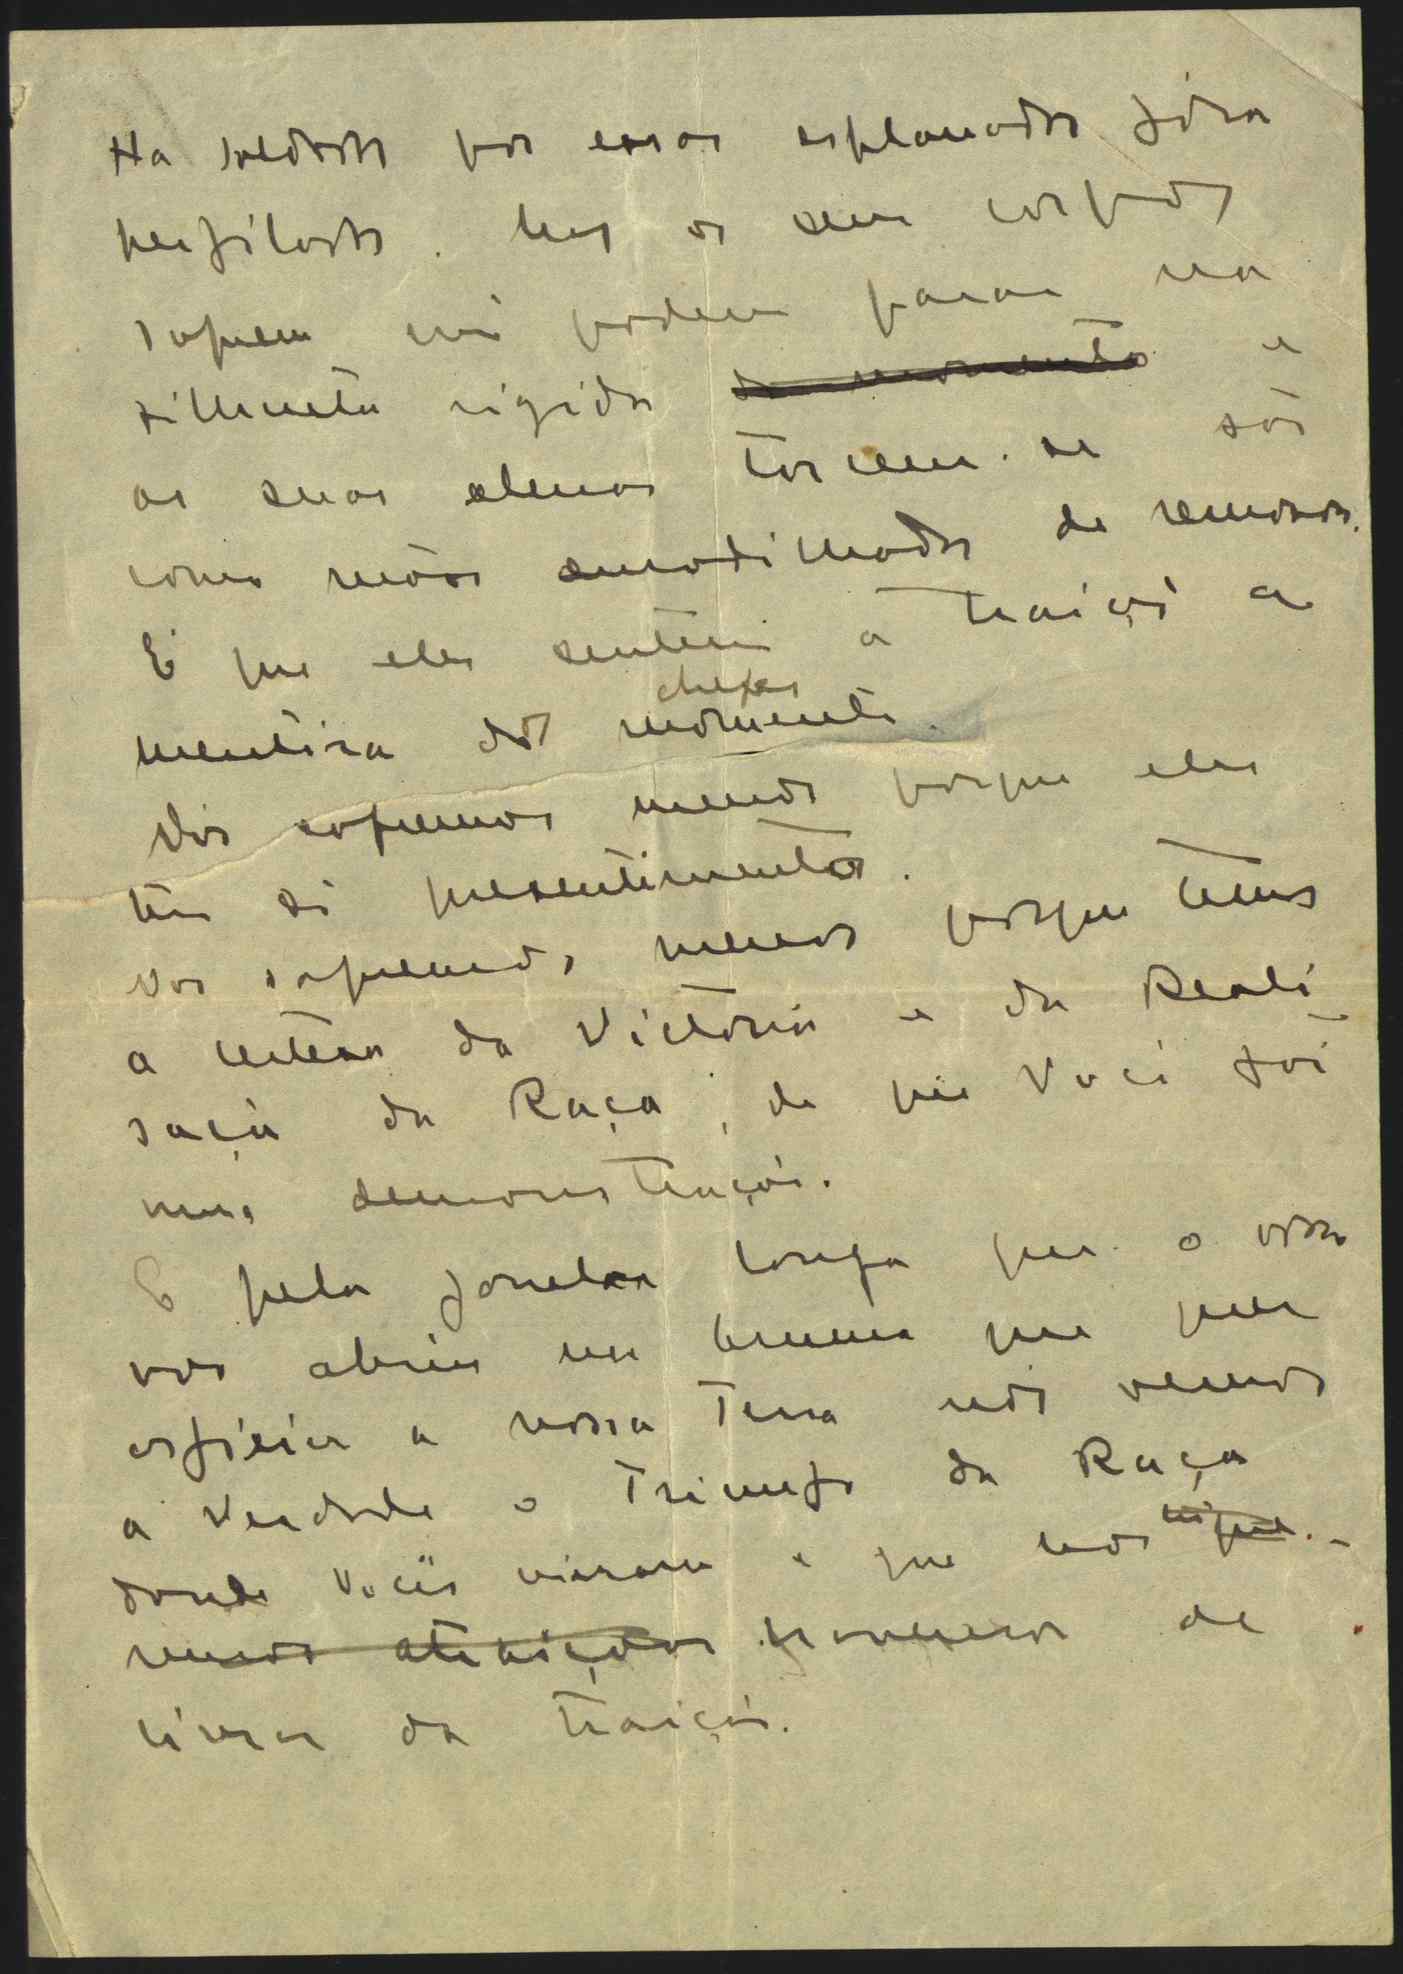 Ha soldados por essas esplanadas fóra
perfilados. Mas os seus corpos
sofrem não podem parar na
silhueta rigida do momento e
as suas almas torcem-se sós
como mãos amodilhadas de remorsos.
É que eles sentem a traição a
mentira dos chefes momento.
Nós sofremos menos porque eles
têm só presentimentos.
Nós sofremos, menos porque temos
a certeza da Victória e da Reali-
sação da Raça, de que Você foi
uma demonstração.
É pela janela longa que o
vôo abriu na bruma que quer
asfixiar a nossa Terra nós vemos
a Verdade o Triunfo da Raça
donde Vocês vieram e que nós
vemos atraiçoar havemos de
livrar da traição.